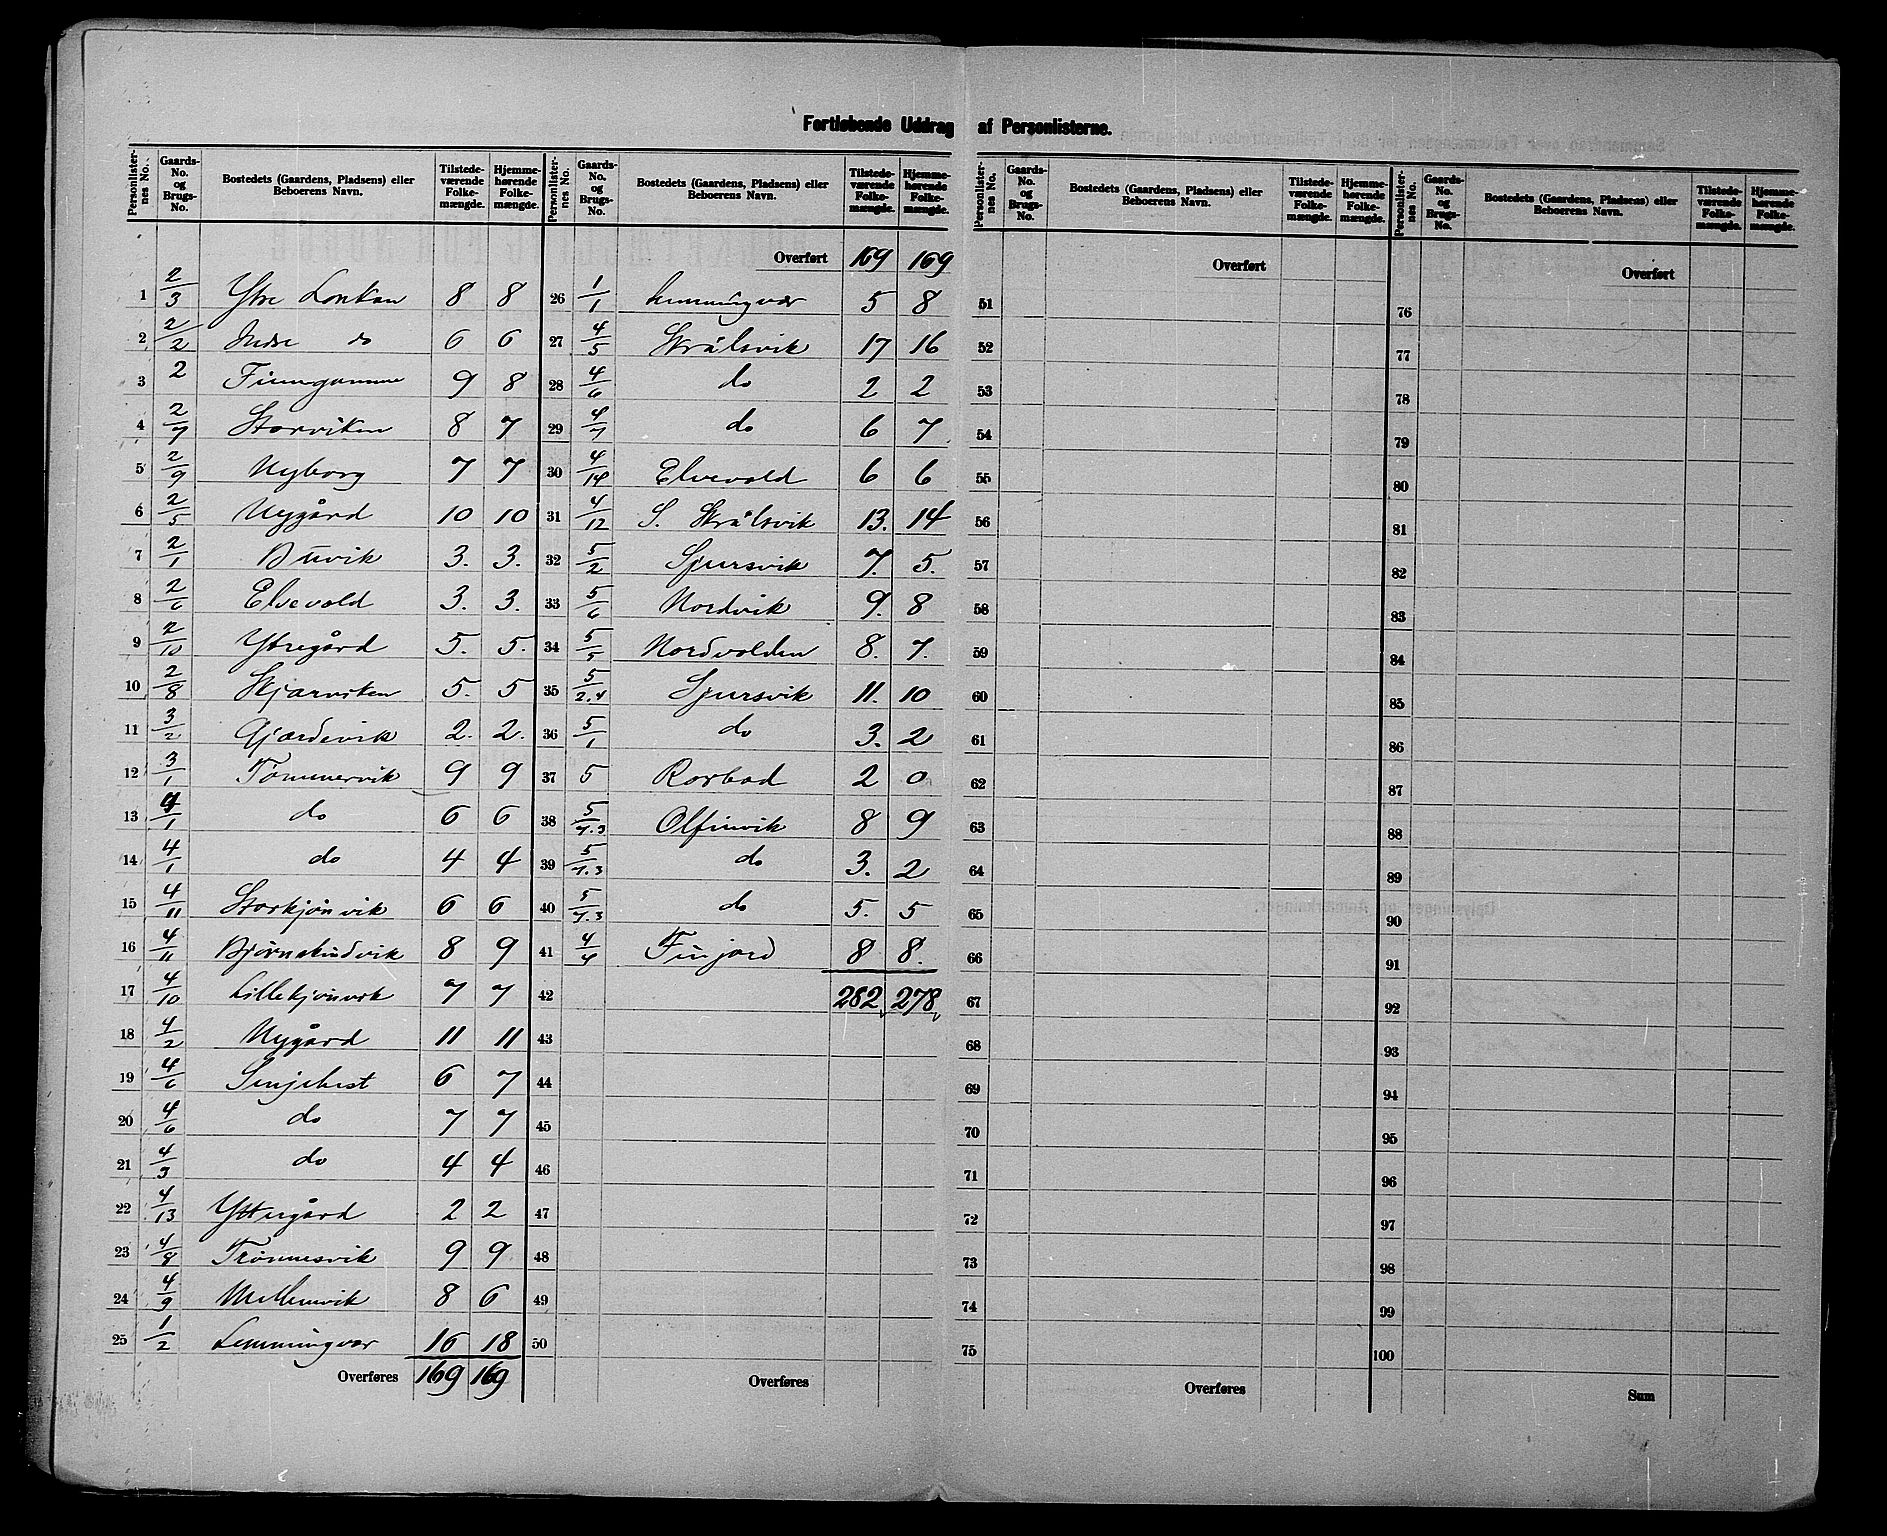 Fortløbende Uddrag af Personlisterne.
Personlister-nes No. Gaards-No. og Brugs-No. Bostedets (Gaardens, Pladsens) eller Beboerens Navn. Tilstede-værende Folke-mængde. Hjemme-hørende Folke-mængde.
Personlister-nes No. Gaards-No. og Brugs-No. Bostedets (Gaardens, Pladsens) eller Beboerens Navn. Tilstede-værende Folke-mængde. Hjemme-hørende Folke-mængde.
Personlister-nes No. Gaards-No. og Brugs-No. Bostedets (Gaardens, Pladsens) eller Beboerens Navn. Tilstede-værende Folke-mængde. Hjemme-hørende Folke-mængde.
Personlister-nes No. Gaards-No. og Brugs-No. Bostedets (Gaardens, Pladsens) eller Beboerens Navn. Tilstede-værende Folke-mængde. Hjemme-hørende Folke-mængde.
1 2/3 Ytre Lonkan 8 8
2 2/2 Indre do 6 6
3 2 Finngamme 9 8
4 2/7 Storviken 8 7
5 2/9 Nyborg 7 7
6 2/5 Nygård 10 10
7 2/1 Buvik 3. 3.
8 2/6 Elvevold 3. 3.
9 2/10 Ytregård 5. 5.
10 2/8 Skjærviken 5. 5
11 3/2 Gjærdevik 2. 2.
12 3/1 Tømmervik 9 9
13 4/1 do 6 6
14 4/1 do 4 4
15 4/11 Storkjønvik 6 6
16 4/11 Bjørnskindvik 8 9
17 4/10 Lillekjønvik 7 7
18 4/2 Nygård 11 11
19 4/6 Senjehest 6 7
20 4/6 do 7 7
21 4/3 do 4 4
22 4/13 Yttergård 2 2
23 4/8 Trønnesvik 9 9
24 4/9 Mellemvik 8 6
25 1/2 Lemmingvær 16 18
Overføres 169 169
Overført 169 169
26 1/1 Lemmingvær 5 8
27 4/5 Skrålsvik 17 16
28 4/6 do 2 2
29 4/7 do 6 7
30 4/14 Elvevold 6 6
31 4/12 S. Skrålsvik 13. 14
32 5/2 Sjursvik 7. 5.
33 5/6 Nordvik 9. 8
34 5/5 Nordvolden 8. 7.
35 5/2.4 Sjursvik 11. 10
36 5/1 do 3. 2
37 5 Rorbod 2 0
38 5/7.3 Olfinvik 8 9
39 5/7.3 do 3. 2
40 5/7.3 do 5. 5
41 4/4 Finjord 8 8.
42 282 278
43
44
45
46
47
48
49
50
Overføres
Overført
51
52
53
54
55
56
57
58
59
60
61
62
63
64
65
66
67
68
69
70
71
72
73
74
75
Overføres
Overført
76
77
78
79
80
81
82
83
84
85
86
87
88
89
90
91
92
93
94
95
96
97
98
99
100
Sum